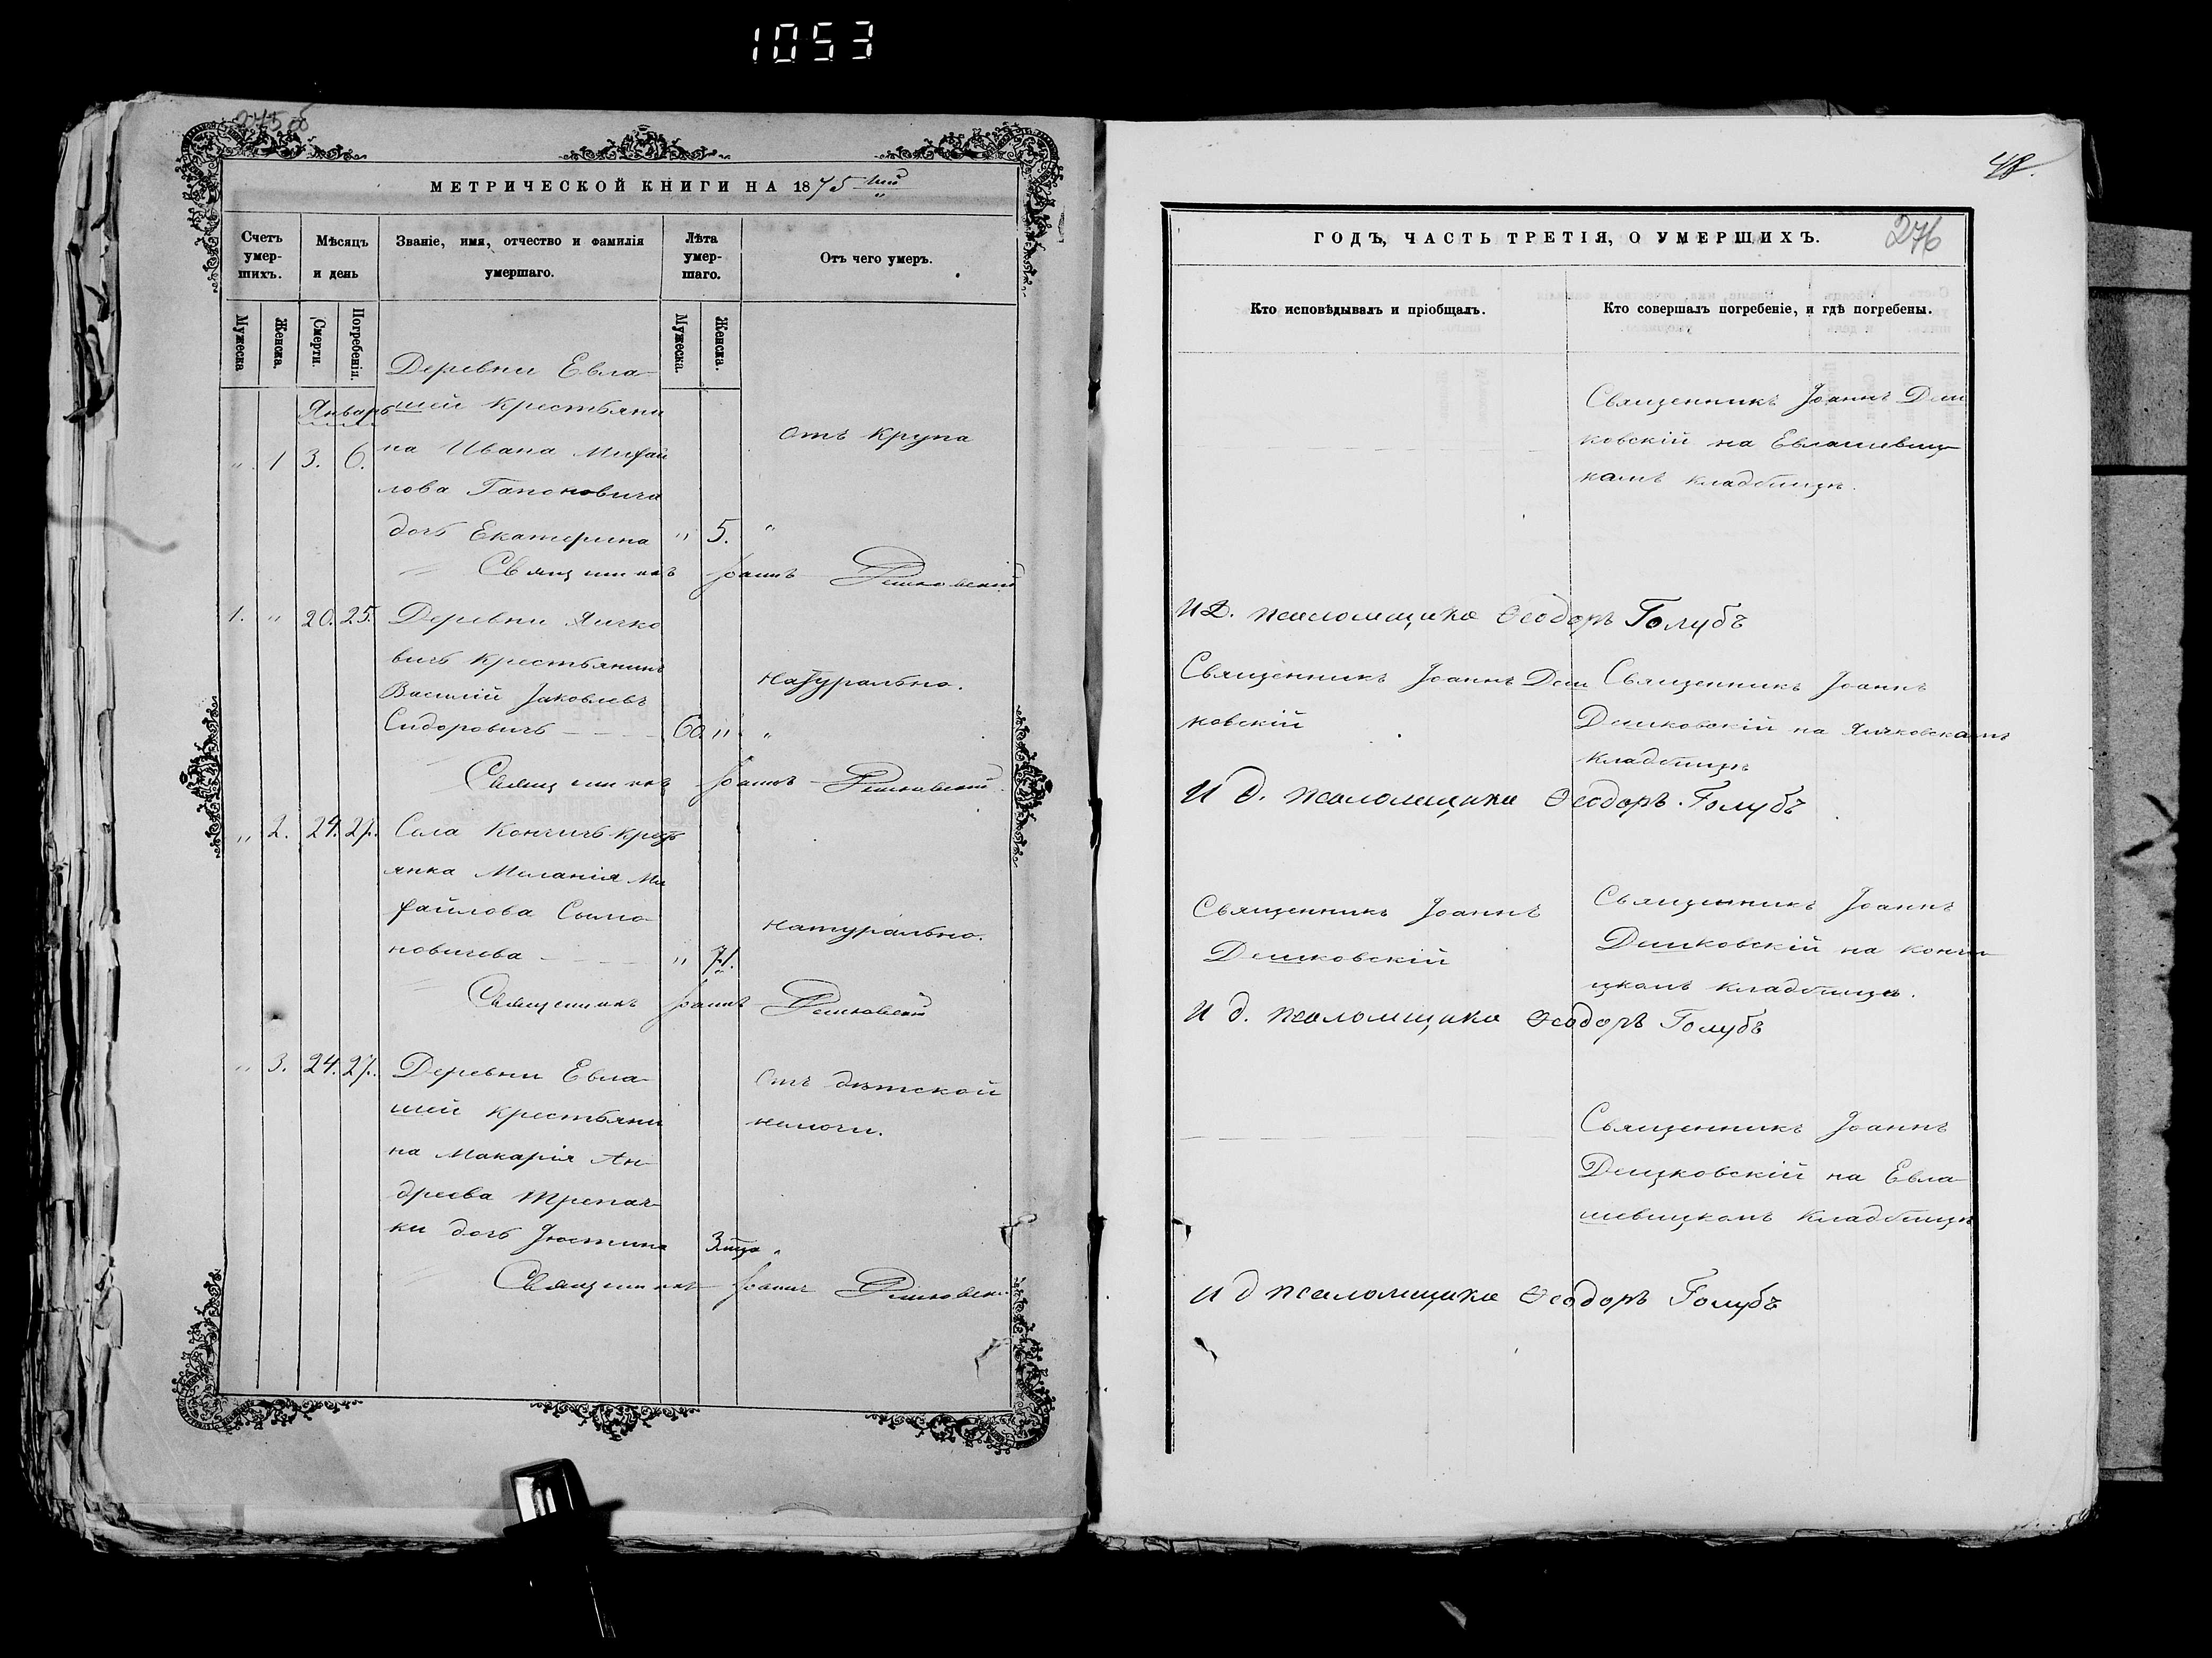 1053
275 об
МЕТРИЧЕСКОЙ КНИГИ НА 1875 ый
Счетъ умер-шихъ.
Мѣсяцъ и день
Званіе, имя, отчество и фамилія умершаго.
Лѣта умер-шаго.
Отъ чего умеръ.
Мужеска
Женска.
Смерти.
Погребенія.
Мужеска.
Женска.
Январь
Деревни Евла-
шей крестьяни
на Ивана Михай
лова Гапоновича
дочь Екатерина
" 1 3. 6.
" 5.
отъ крупа
"
Священникъ Іоаннъ Демковскій
1. " 20. 25.
Деревни Ячко
вичь крестьянинъ
Василій Іаковлевъ
Сидоровичъ
60 "
натурально.
"
Священникъ Іоаннъ Демковскій
" 2. 24. 27.
Села Кончичь крест
янка Меланія Ми
хайлова Симо
новичева
" 71.
натурально.
Священникъ Іоаннъ Демковскій
" 3. 24. 27.
Деревни Евла-
шей крестьяни
на Макарія Ан-
дреева Трепач-
ки дочь Іюстина
3 мца
отъ дѣтской
немочи.
Священникъ Іоаннъ Демковскі
48.
276
ГОДЪ, ЧАСТЬ ТРЕТІЯ, О УМЕРШИХЪ.
Кто исповѣдывалъ и пріобщалъ.
Кто совершалъ погребеніе, и гдѣ погребены.
Священникъ Іоаннъ Дем
ковскій на Евлашевиц-
комъ кладбищѣ.
И Д. псаломщика Ѳеодоръ Голубъ
Священникъ Іоаннъ Дем
ковскій
Священникъ Іоаннъ
Демковскій на Ячковскомъ
кладбищѣ
И д. псаломщика Ѳеодоръ Голубъ
Священникъ Іоаннъ
Демковскій
Священникъ Іоаннъ
Демковскій на Кончи-
цкомъ кладбищѣ.
И д. псаломщика Ѳеодоръ Голубъ
Священникъ Іоаннъ
Демковскій на Евла-
шевицкомъ кладбищѣ
И д псаломщика Ѳеодоръ Голубъ